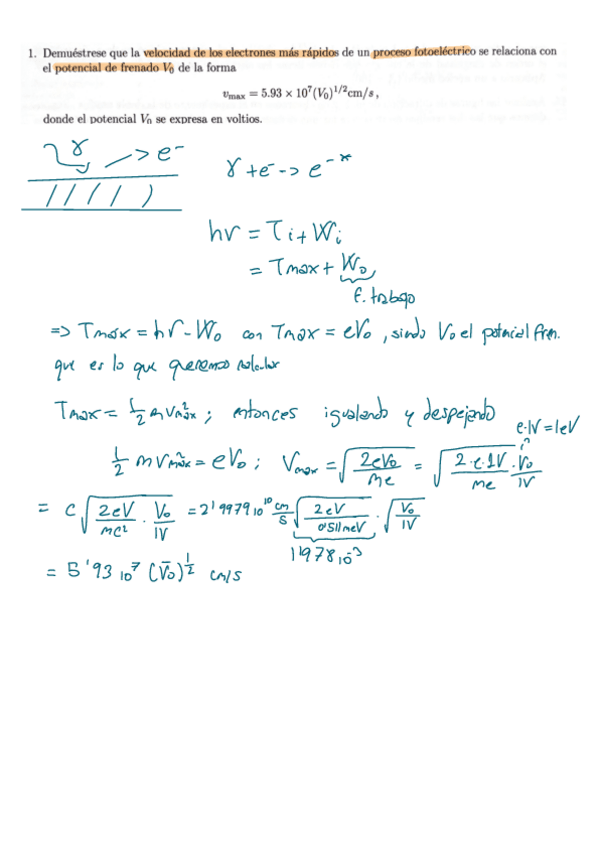 1. Demuéstrese que la velocidad de los electrones más rápidos de un proceso fotoeléctrico se relaciona con
el potencial de frenado V₀ de la forma
v_max = 5.93 × 10⁷(V₀)^{1/2}cm/s ,
donde el potencial V₀ se expresa en voltios.
γ → e⁻
γ + e⁻ -> e⁻*
hν = Ti + Wi
= Tmax + W₀
f. trabajo
=> Tmáx = hν - W₀ con Tmax = eV₀ , siendo V₀ el potencial fren.
que es lo que queremos calcular
Tmax = ½ m v²máx ; entonces igualando y despejando
e·1V = 1eV
½ m v²máx = eV₀ ; Vmax = √(2eV₀/me) = √(2·e·1V/me · V₀/1V)
= c √(2eV/mc² · V₀/1V) = 2'9979 10¹⁰ cm/s √(2eV/0'511meV) · √(V₀/1V)
1'1978 10⁻³
= 5'93 10⁷ (V₀)^{1/2} cm/s